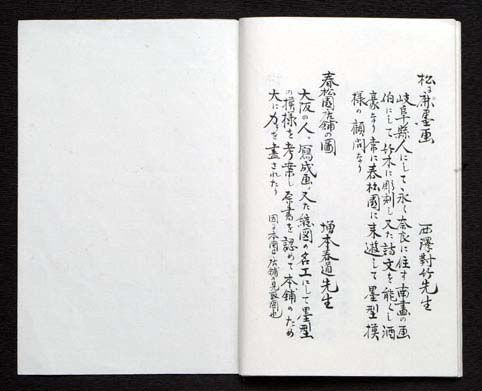 松に斎墨画　西澤對竹先生
岐阜縣人にして永く奈良に住す南畫の画
伯にして竹木に彫刻し又た詩文を能くし酒
豪なり常に春松園に来遊して墨型摸
様の顧問なり
春松園店舗の圖　増本春道先生
大阪の人、寫成画又た縮図の名工にして墨型
の摸様を考案し原書を認めて本舗のため
大に力を盡されたり
図は本園店舗の見取図也